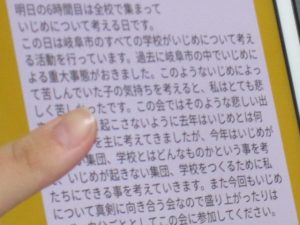 明日の6時間目は全校で集まって
いじめについて考える日です。
この日は岐阜市のすべての学校がいじめについて考え
る活動を行っています。過去に岐阜市の中でいじめに
よる重大事態がおきました。このようないじめによっ
て苦しんでいた子の気持ちを考えると、私はとても悲
しく苦しかったです。この会ではそのような悲しい出
起こさないように去年はいじめとは何
を主に考えてきましたが、今年はいじめが
集団、学校とはどんなものかという事を考
、いじめが起きない集団、学校をつくるために私
たちにできる事を考えていきます。また今回もいじめ
について真剣に向き合う会なので盛り上がったりは
ととしてこの会に参加してください。